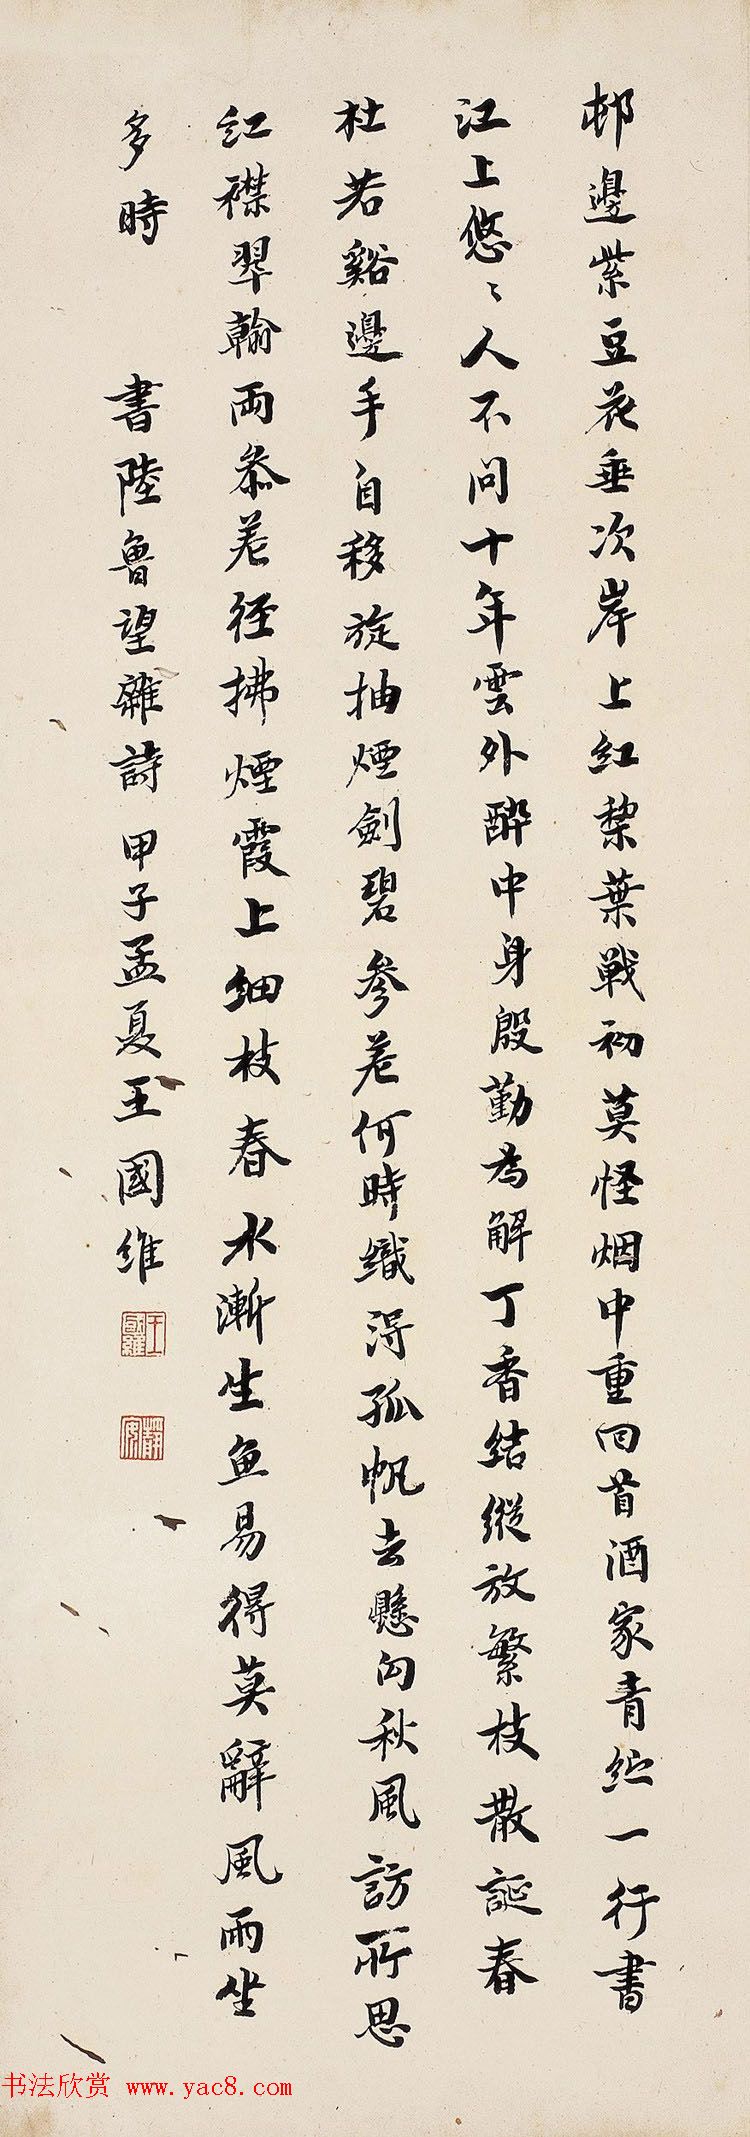 邨邊紫豆花垂次岸上紅棃葉戰初莫怪烟中重回首酒家青紵一行書
江上悠〻人不問十年雲外醉中身殷勤為解丁香結縱放繁枝散誕春
杜若谿邊手自移旋抽煙劍碧參差何時織得孤帆去懸向秋風訪所思
紅襟翠翰兩叅差徑拂煙霞上細枝春水漸生魚易得莫辭風雨坐
多時 書陸魯望雜詩 甲子孟夏王國維
王國維
靜安
书法欣赏 www.yac8.com